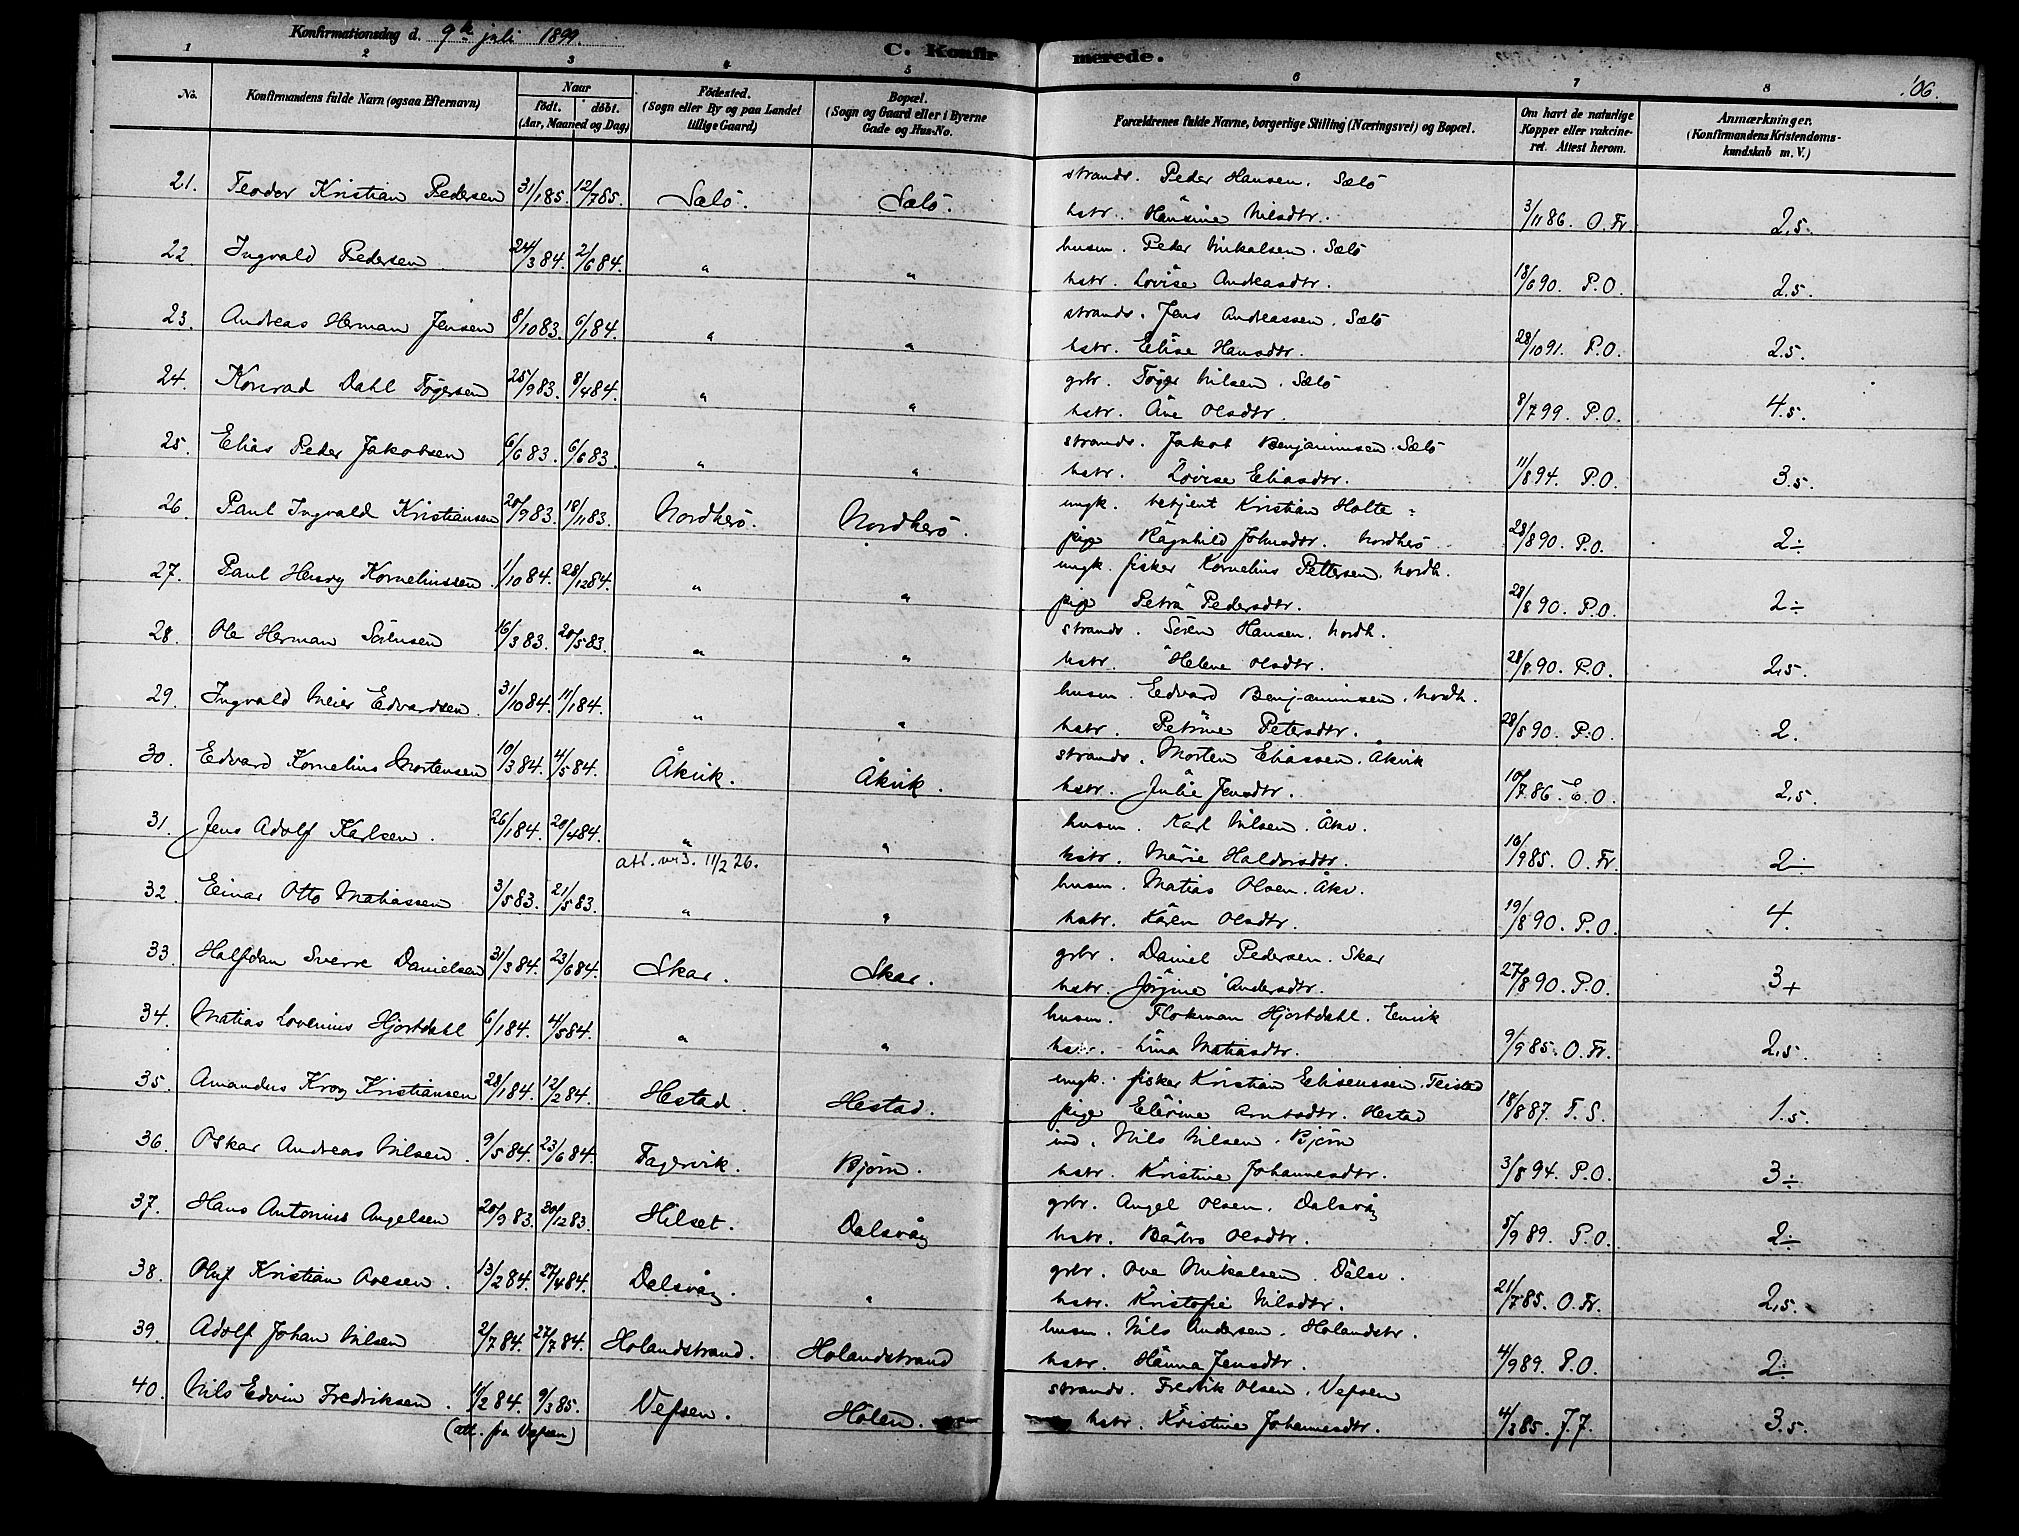 Konfirmationsdag d. 9de juli 1899.
C. Konfirmerede.
106.
1 2 3 4 5 6 7 8
No.
Konfirmandens fulde Navn (ogsaa Efternavn)
Naar
født. døbt.
(Aar, Maaned og Dag)
Fødested.
(Sogn eller By og paa Landet
tillige Gaard)
Bopæl.
(Sogn og Gaard eller i Byerne
Gade og Hus-No.
Forældrenes fulde Navne, borgerlige Stilling (Næringsvei) og Bopæl.
Om havt de naturlige
Kopper eller vakcine-
ret. Attest herom.
Anmærkninger.
(Konfirmandens Kristendoms-
kundskab m. V.)
21. Teodor Kristian Pedersen 31/1 85. 12/7 85. Sælö. Sælö. strands. Peder Hansen. Sælö
hstr. Hansine Nilsdtr. 3/11 86. O. Fr. 2,5.
22. Ingvald Pedersen 24/3 84. 2/6 84. " " husm. Peder Mikalsen. Sælö
hstr. Lovise Andreasdtr. 18/6 90. P.O. 2.5.
23. Andreas Herman Jensen 8/10 83. 6/1 84. " " strands. Jens Andreassen. Sælö
hstr. Elise Hansdtr. 28/10 91. P.O. 2.5.
24. Konrad Dahl Tøgersen 25/9 83. 8/4 84. " " grbr. Töger Nilsen. Sælö
hstr. Ane Olsdtr. 8/7 99. P.O. 4.5.
25. Elias Peder Jakobsen 6/6 83. 6/6 83. " " strands. Jakob Benjaminsen. Sælö
hstr. Lovise Eliasdtr. 11/8 94. P.O. 3.5.
26. Paul Ingvald Kristiansen 20/9 83. 18/11 83. Nordherö. Nordherö. ungk. betjent Kristian Holte
pige Ragnhild Johnsdtr. Nordherö 28/8 90. P.O. 2÷
27. Paul Hersog Kornelinssen 1/10 84. 28/12 84. " " ungk. fisker Kornelius Pettersen. Nordh.
pige Petra Pedersdtr. 28/8 90. P.O. 2÷
28. Ole Herman Sörensen 16/3 83. 20/5 83. " " strands. Sören Hansen. Nordh.
hstr. Helene Olsdtr. 28/8 90. P.O. 2,5
29. Ingvald Meier Edvardsen. 31/10 84. 11/1 84. " " husm. Edvard Benjaminsen. Nordh.
hstr. Petrine Petersdtr. 28/8 90. P.O. 2.
30. Edvard Kornelius Mortensen 10/3 84. 4/5 84. Åkvik. Åkvik. strands. Morten Eliassen. Åkvik
hstr. Julie Jensdtr. 10/7 86. E.O. 2,5.
31. Jens Adolf Karlsen. 26/1 84. 20/4 84. " " husm. Karl Nilsen. Åkv.
att. 11/2 26. hstr. Marie Haldorsdtr. 16/9 85. O. Fr. 2÷
32. Einar Otto Matiassen 3/5 83. 21/5 83. " " husm. Matias Olsen. Åkv.
hstr. Karen Olsdtr. 19/8 90. P.O. 4.
33. Halfdan Sverre Danielsen 31/3 84. 23/6 84. Skar. Skar. grbr. Daniel Pedersen. Skar
hstr. Jörgine Andersdtr. 27/8 90. P.O. 3+
34. Matias Lovenius Hjortdahl 6/1 84. 4/5 84. " " husm. Flokman Hjortdahl.
hstr. Lina Matiasdtr. 9/9 85. O. Fr. 2,5.
35. Amandus Krog Kristiansen 28/1 84. 12/2 84. Hestad. Hestad. ungk. fisker Kristian Elisenssen. Teistad
pige Elevine Arntsdtr. Hestad 18/8 87. T. S. 1.5.
36. Oskar Andreas Nilsen. 9/5 84. 23/6 84. Fagervik. Bjørn. ind. Nils Nilsen. Bjørn
hstr. Kristine Johannesdtr. 3/8 94. P.O. 3÷
37. Hans Antonius Angelsen 20/9 83. 30/12 83. Hilset. Dalsvåg grbr. Angel Olsen. Dalsvåg
hstr. Barbro Olsdtr. 5/9 89. P.O. 2÷
38. Oluf Kristian Ovesen. 13/2 84. 27/4 84. Dalsvåg. " grbr. Ove Mikalsen. Dalsv.
hstr. Kristofie Nilsdtr. 21/7 85. O. Fr. 2,5.
39. Adolf Johan Nilsen 2/7 84. 27/7 84. Holandstrand. Holandstrand husm. Nils Andersen. Holandstr.
hstr. Hanna Jensdtr. 4/9 89. P.O. 2÷
40. Nils Edvin Fredriksen. 11/2 84. 9/3 85. Vefsen. Holen. strands. Fredrik Olsen. Vefsen
(att. fra Vefsen) hstr. Kristine Johannesdtr. 4/3 85. J.J. 3.5.